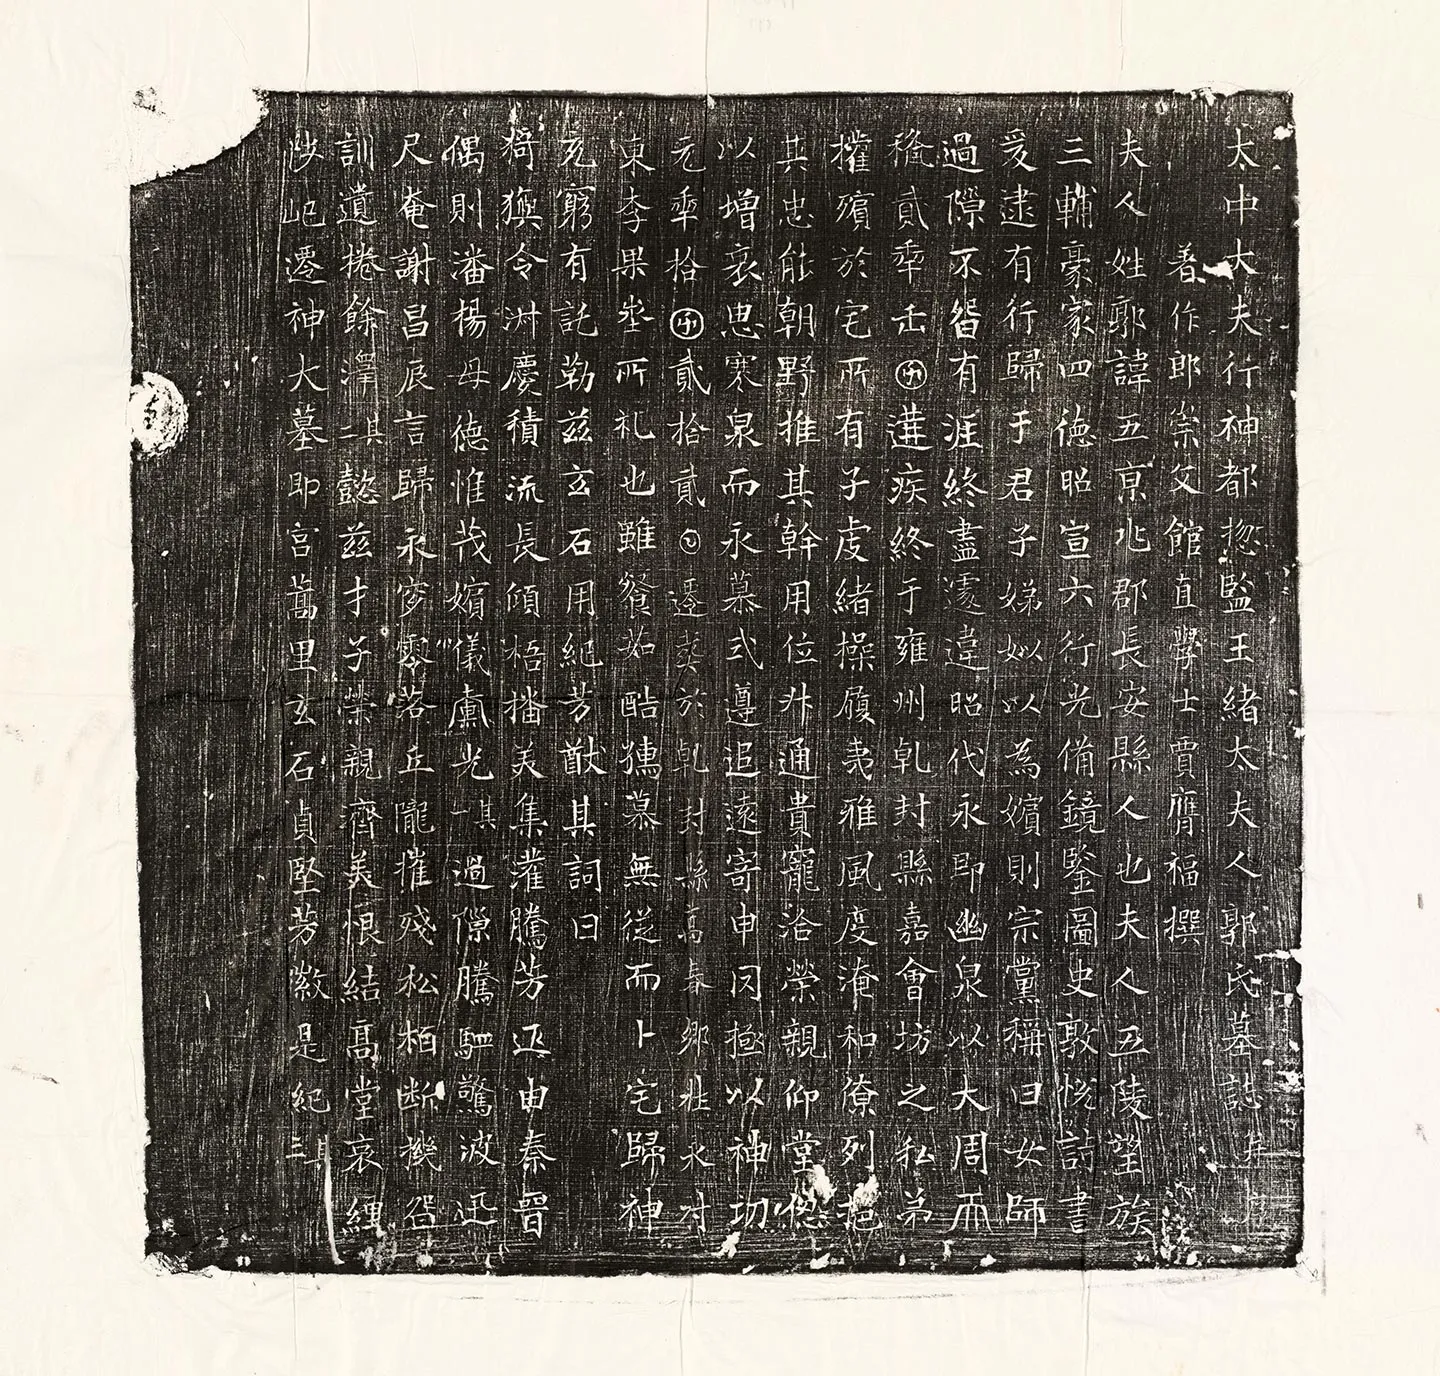 太中大夫行神都惣監王緒太夫人郭氏墓誌并序
著作郎崇文館直學士賈膺福撰
夫人姓郭諱五京兆郡長安縣人也夫人五陵望族
三輔豪家四德昭宣六行光備鏡鑒圖史敦悅詩書
爰逮有行歸于君子娣姒以為嬪則宗黨稱曰女師
過隙不留有涯終盡遽違昭代永即幽泉以大周而
稔貳年五囝遘疾終于雍州乹封縣嘉會坊之私第
權殯於宅所有子虔緒操履夷雅風度淹和僚列挹
其忠能朝野推其幹用位升通貴寵洽榮親仰堂偬
以增哀思寒泉而永慕式遵追遠寄申罔極以神功
元年拾囝貳拾貳㋡遷葬於乹封縣萬春鄉壯永村
東李果塋所礼也雖餐茹酷獯慕無從而卜宅歸神
克窮有託勒茲玄石用紀芳猷其詞曰
猗歟令淑慶積流長傾梧播美集灌騰芳匹由秦晉
偶則潘楊母德惟茂嬪儀薦光其一過隙騰駟驚波迅
尺奄謝昌辰言歸永穸零落丘隴摧殘松柏斷機留
訓遺棬餘澤其二懿茲才子榮親濟美恨結高堂哀纏
陟屺遷神大墓即宮蒿里玄石貞堅芳徽是紀其三